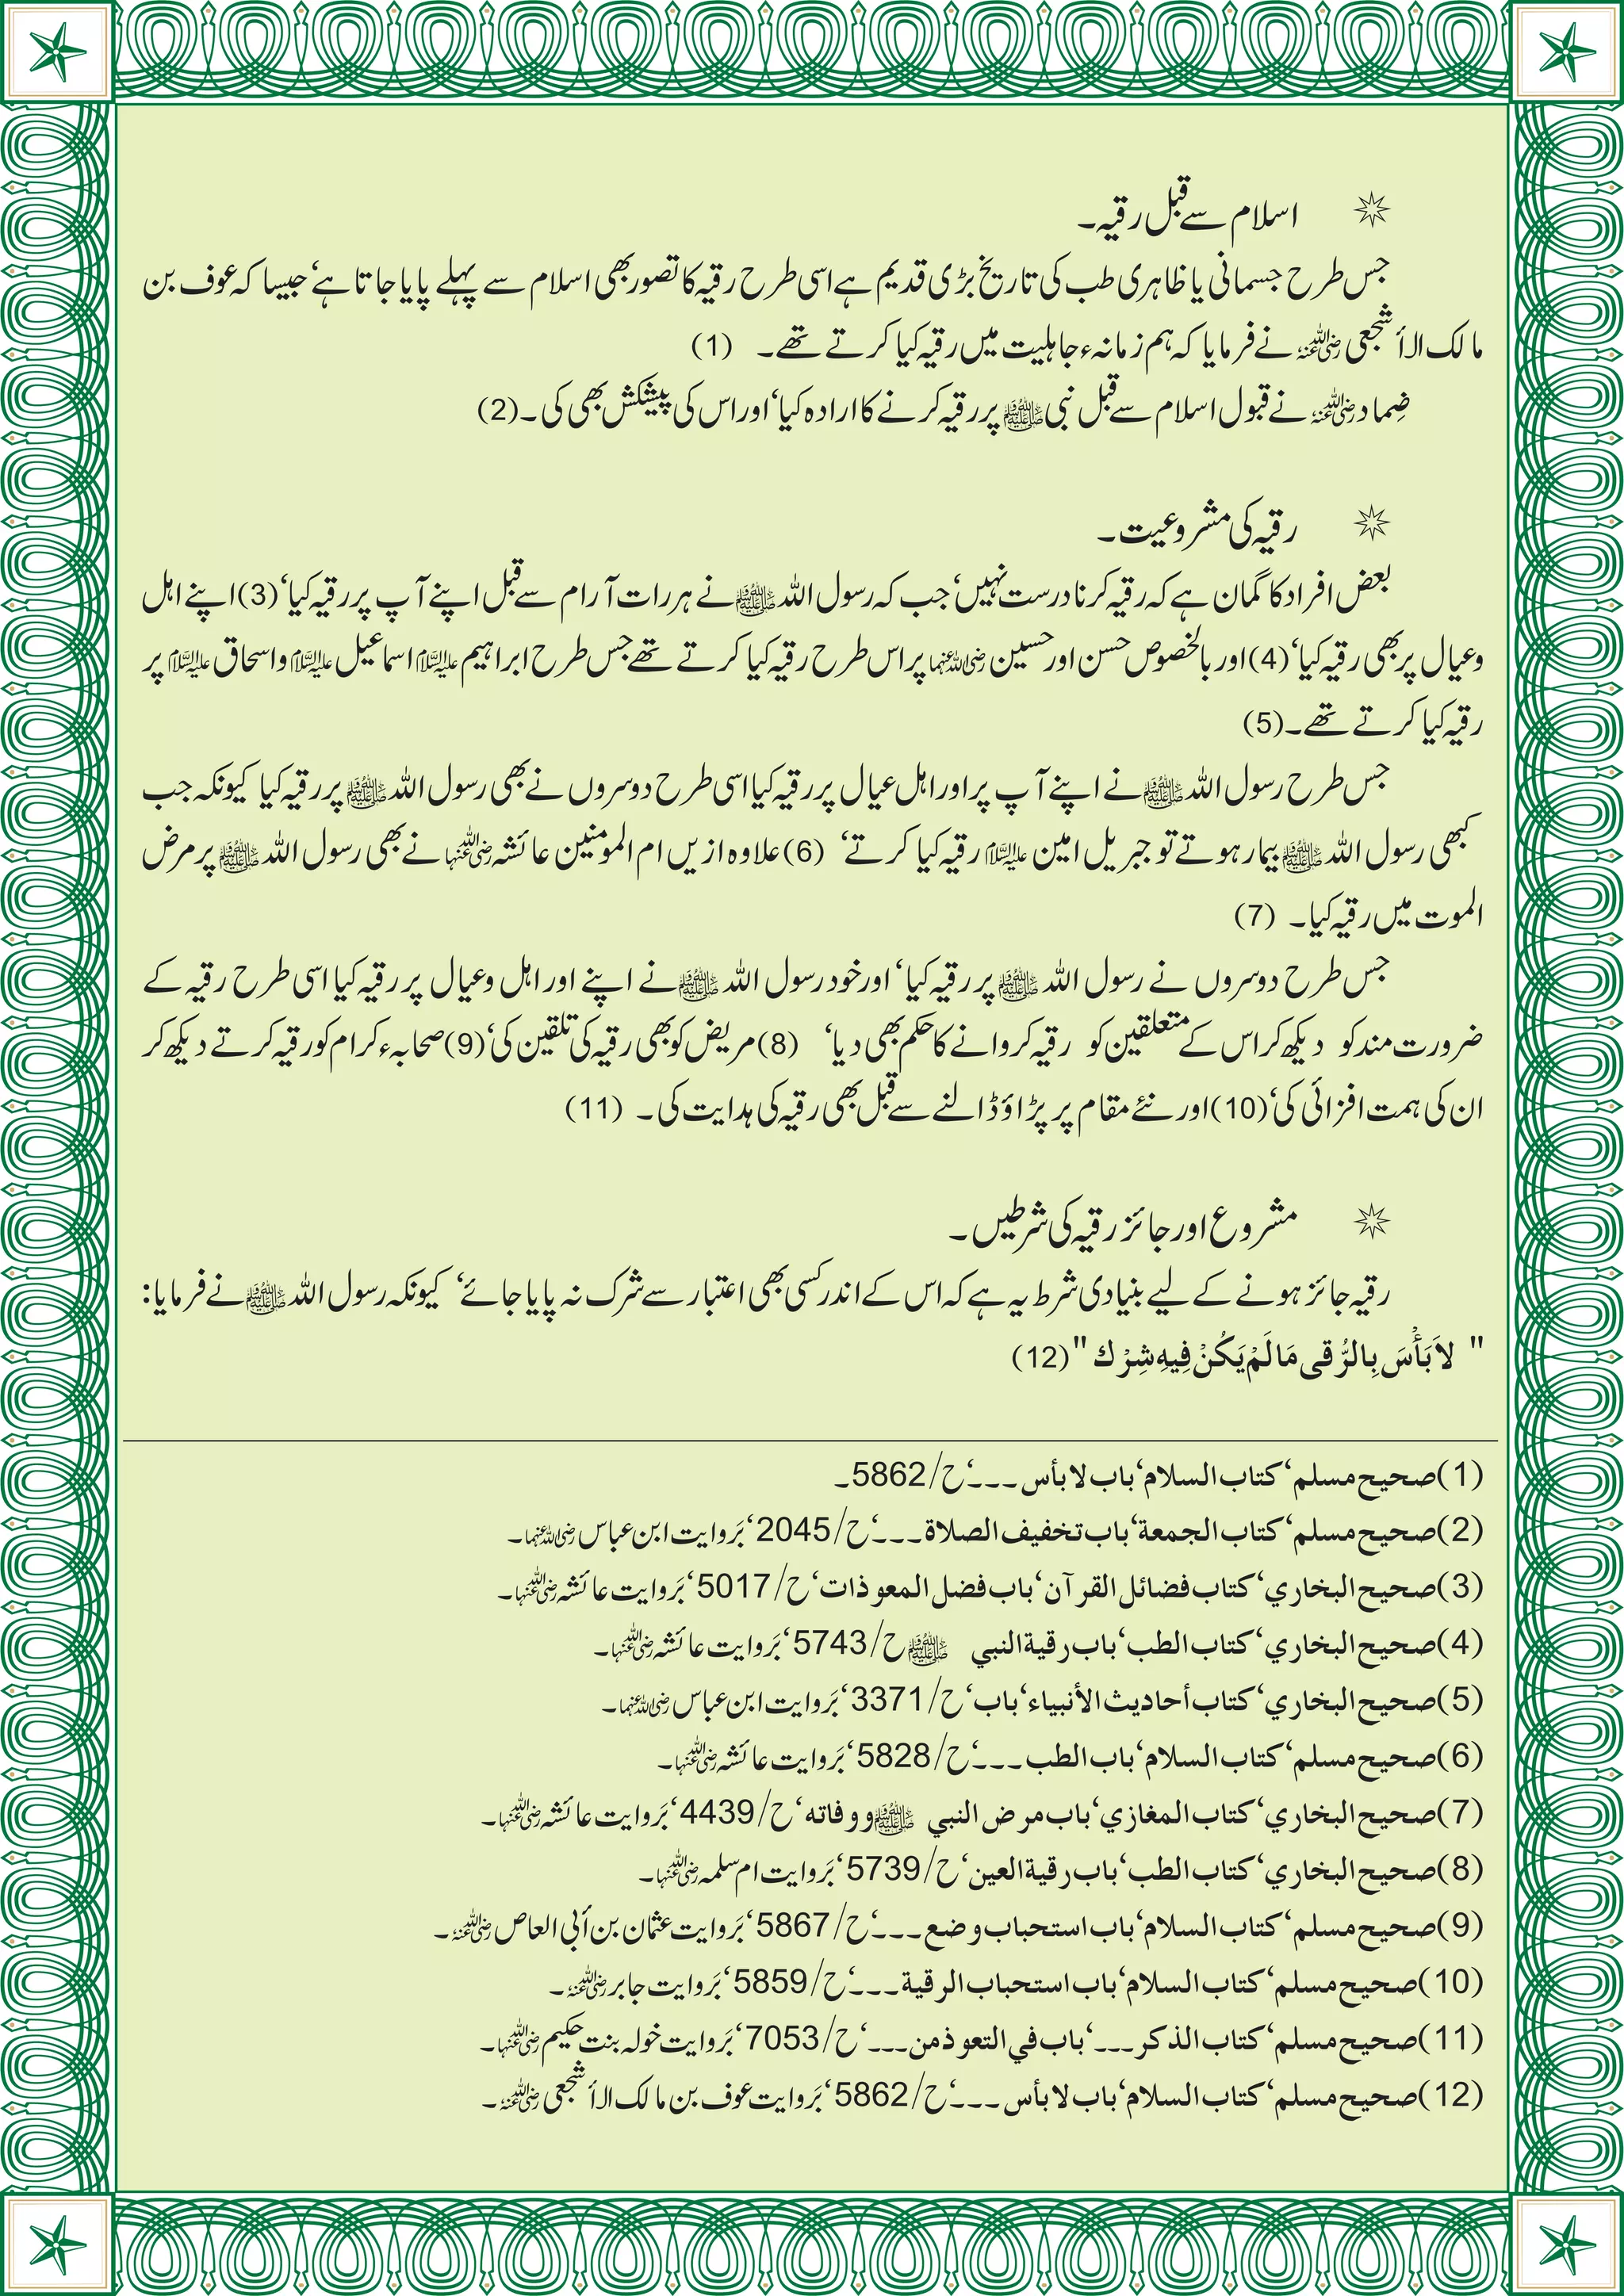 اسلام سے قبل رقیہ۔
جس طرح جسمانی یا ظاہری طب کی تاریخ بڑی قدیم ہے اسی طرح رقیہ کا تصور بھی اسلام سے پہلے پایا جاتا ہے‘ جیسا کہ عوف بن
مالک الأشجعی رضی اللہ عنہ نے فرمایا کہ ہم زمانہء جاہلیت میں رقیہ کیا کرتے تھے۔ (1)
ضِماد رضی اللہ عنہ نے قبول اسلام سے قبل نبی ﷺ پر رقیہ کرنے کا ارادہ کیا‘ اور اس کی پیشکش بھی کی۔(2)
رقیہ کی مشروعیت۔
بعض افراد کا گمان ہے کہ رقیہ کرنا درست نہیں‘ جب کہ رسول اللہ ﷺ نے ہر رات آرام سے قبل اپنے آپ پر رقیہ کیا‘ (3) اپنے اہل
وعیال پر بھی رقیہ کیا‘ (4) اور بالخصوص حسن اور حسین رضی اللہ عنہما پر اس طرح رقیہ کیا کرتے تھے جس طرح ابراہیم علیہ السلام اسماعیل علیہ السلام و اسحاق علیہ السلام پر
رقیہ کیا کرتے تھے۔(5)
جس طرح رسول اللہ ﷺ نے اپنے آپ پر اور اہل عیال پر رقیہ کیا اسی طرح دوسروں نے بھی رسول اللہ ﷺ پر رقیہ کیا کیونکہ جب
کبھی رسول اللہ ﷺ بیمار ہوتے تو جبریل امین علیہ السلام رقیہ کیا کرتے‘ (6) علاوہ ازیں ام المومنین عائشہ رضی اللہ عنہا نے بھی رسول اللہ ﷺ پر مرض
الموت میں رقیہ کیا۔ (7)
جس طرح دوسروں نے رسول اللہ ﷺ پر رقیہ کیا‘ اور خود رسول اللہ ﷺ نے اپنے اور اہل وعیال پر رقیہ کیا اسی طرح رقیہ کے
ضرورت مند کو دیکھ کر اس کے متعلقین کو رقیہ کروانے کا حکم بھی دیا‘ (8) مریض کو بھی رقیہ کی تلقین کی‘ (9) صحابہء کرام کو رقیہ کرتے دیکھ کر
ان کی ہمت افزائی کی‘ (10) اور نئے مقام پر پڑاؤ ڈالنے سے قبل بھی رقیہ کی ہدایت کی۔ (11)
مشروع اور جائز رقیہ کی شرطیں۔
رقیہ جائز ہونے کے لیے بنیادی شرط یہ ہے کہ اس کے اندر کسی بھی اعتبار سے شرک نہ پایا جائے‘ کیونکہ رسول اللہ ﷺ نے فرمایا:
" لاَ بَأْسَ بِالرُّقى مَا لَمْ يَكُنْ فِيهِ شِرْك " (12)
(1) صحيح مسلم‘ كتاب السلام‘ باب لا بأس ۔۔۔‘ ح/5862۔
(2) صحيح مسلم‘ كتاب الجمعة‘ باب تخفيف الصلاة۔۔۔‘ ح/2045‘ بَروایت ابن عباس رضی اللہ عنہما۔
(3) صحيح البخاري‘ كتاب فضائل القرآن‘ باب فضل المعوذات‘ ح/5017‘ بَروایت عائشہ رضی اللہ عنہا۔
(4) صحيح البخاري‘ كتاب الطب‘ باب رقية النبي ﷺ ح/5743‘ بَروایت عائشہ رضی اللہ عنہا۔
(5) صحيح البخاري‘ كتاب أحاديث الأنبياء‘ باب‘ ح/3371‘ بَروایت ابن عباس رضی اللہ عنہما۔
(6) صحيح مسلم‘ كتاب السلام‘ باب الطب ۔۔۔‘ ح/5828‘ بَروایت عائشہ رضی اللہ عنہا۔
(7) صحيح البخاري‘ كتاب المغازي‘ باب مرض النبي ﷺ ووفاته‘ ح/4439‘ بَروایت عائشہ رضی اللہ عنہا۔
(8) صحيح البخاري‘ كتاب الطب‘ باب رقية العين‘ ح/5739‘ بَروایت ام سلمہ رضی اللہ عنہا۔
(9) صحيح مسلم‘ كتاب السلام‘ باب استحباب وضع۔۔۔‘ ح/5867‘ بَروایت عثمان بن أبی العاص رضی اللہ عنہ۔
(10) صحيح مسلم‘ كتاب السلام‘ باب استحباب الرقية۔۔۔‘ ح/5859‘ بَروایت جابر رضی اللہ عنہ۔
(11) صحيح مسلم‘ كتاب الذكر۔۔۔‘ باب في التعوذ من۔۔۔‘ ح/7053‘ بَروایت خولہ بنت حکیم رضی اللہ عنہا۔
(12) صحيح مسلم‘ كتاب السلام‘ باب لا بأس ۔۔۔‘ ح/5862‘ بَروایت عوف بن مالک الأشجعی رضی اللہ عنہ۔